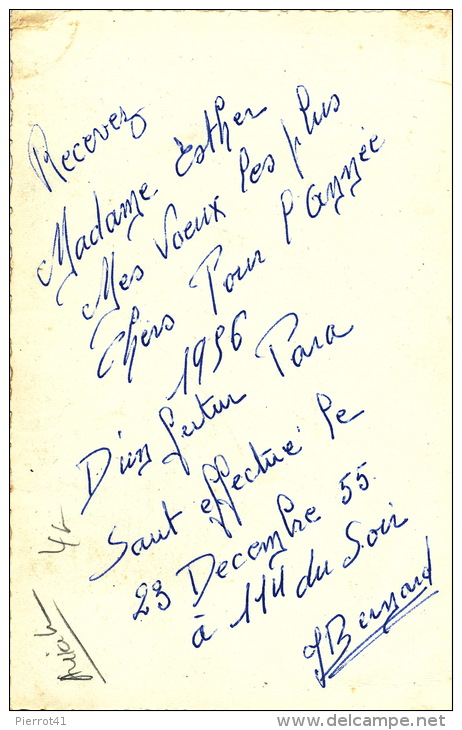 Recevez
Madame Esther
Mes Voeux les plus
Chers Pour l'Année
1956
D'un futur Para
Saut effectué le
23 Decembre 55.
à 11H du Soir
J Bernard
Pierrot41
www.delcampe.net